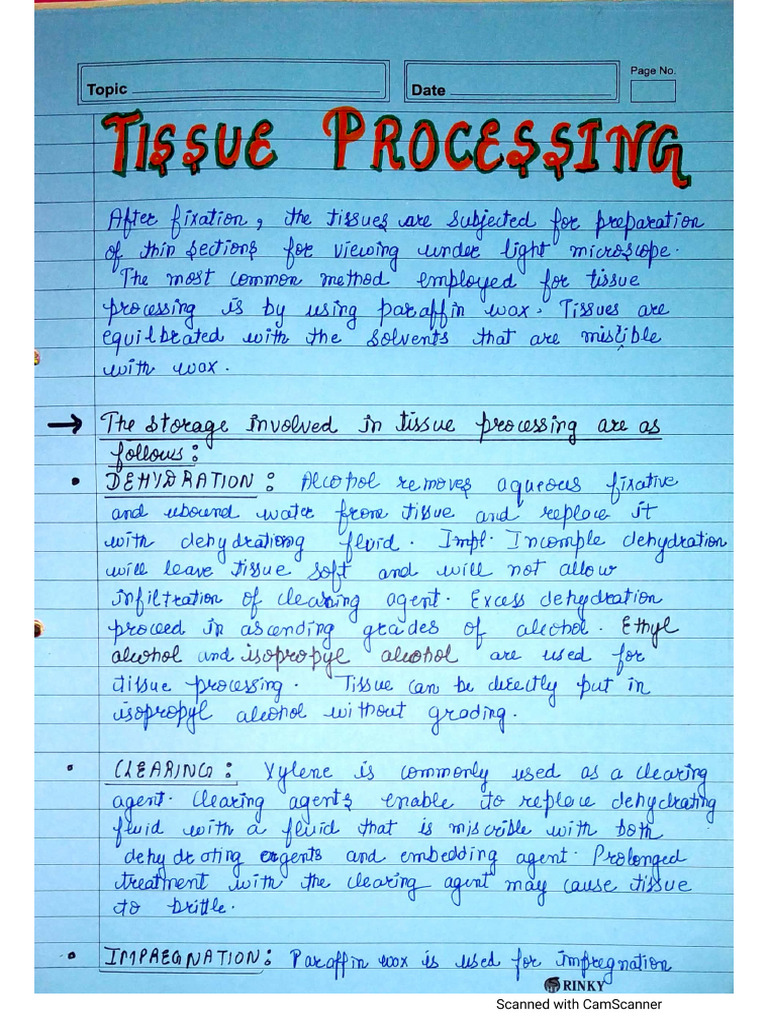 Topic
Date
Page No.
TISSUE PROCESSING
After fixation, the tissues are subjected for preparation
of thin sections for viewing under light microscope.
The most common method employed for tissue
processing is by using paraffin wax. Tissues are
equilbrated with the solvents that are mislible
with wax.
→ The storage involved in tissue processing are as
follows:
• DEHYDRATION: Alcohol removes aqueous fixative
and ubound water from tissue and replace it
with dehydrationg fluid. Impl. Incomple dehydration
will leave tissue soft and will not allow
infiltration of clearing agent. Excess dehydration
proceed in ascending grades of alcohol. Ethyl
alcohol and isopropyl alcohol are used for
tissue processing. Tissue can be directly put in
isopropyl alcohol without grading.
• CLEARING: Xylene is commonly used as a clearing
agent. Clearing agents enable to replace dehydrating
fluid with a fluid that is miscrible with both
dehydrating ergents and embedding agent. Prolonged
treatment with the clearing agent may cause tissue
to brittle.
• IMPREGNATION: Paraffin wax is used for impregnation
RINKY
Scanned with CamScanner